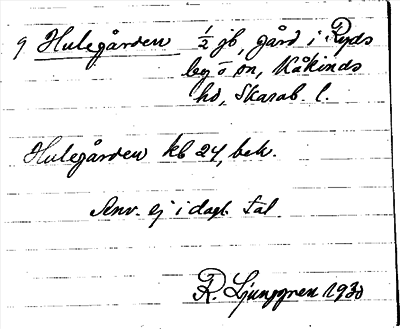 9 Hulegården 1/2 jb, gård i Ryds
by o ön, Kåkinds
hd, Skarab. l.
Hulegården kb 24, bek.
Anv. ej i dagl. tal.
R. Ljunggren 1930